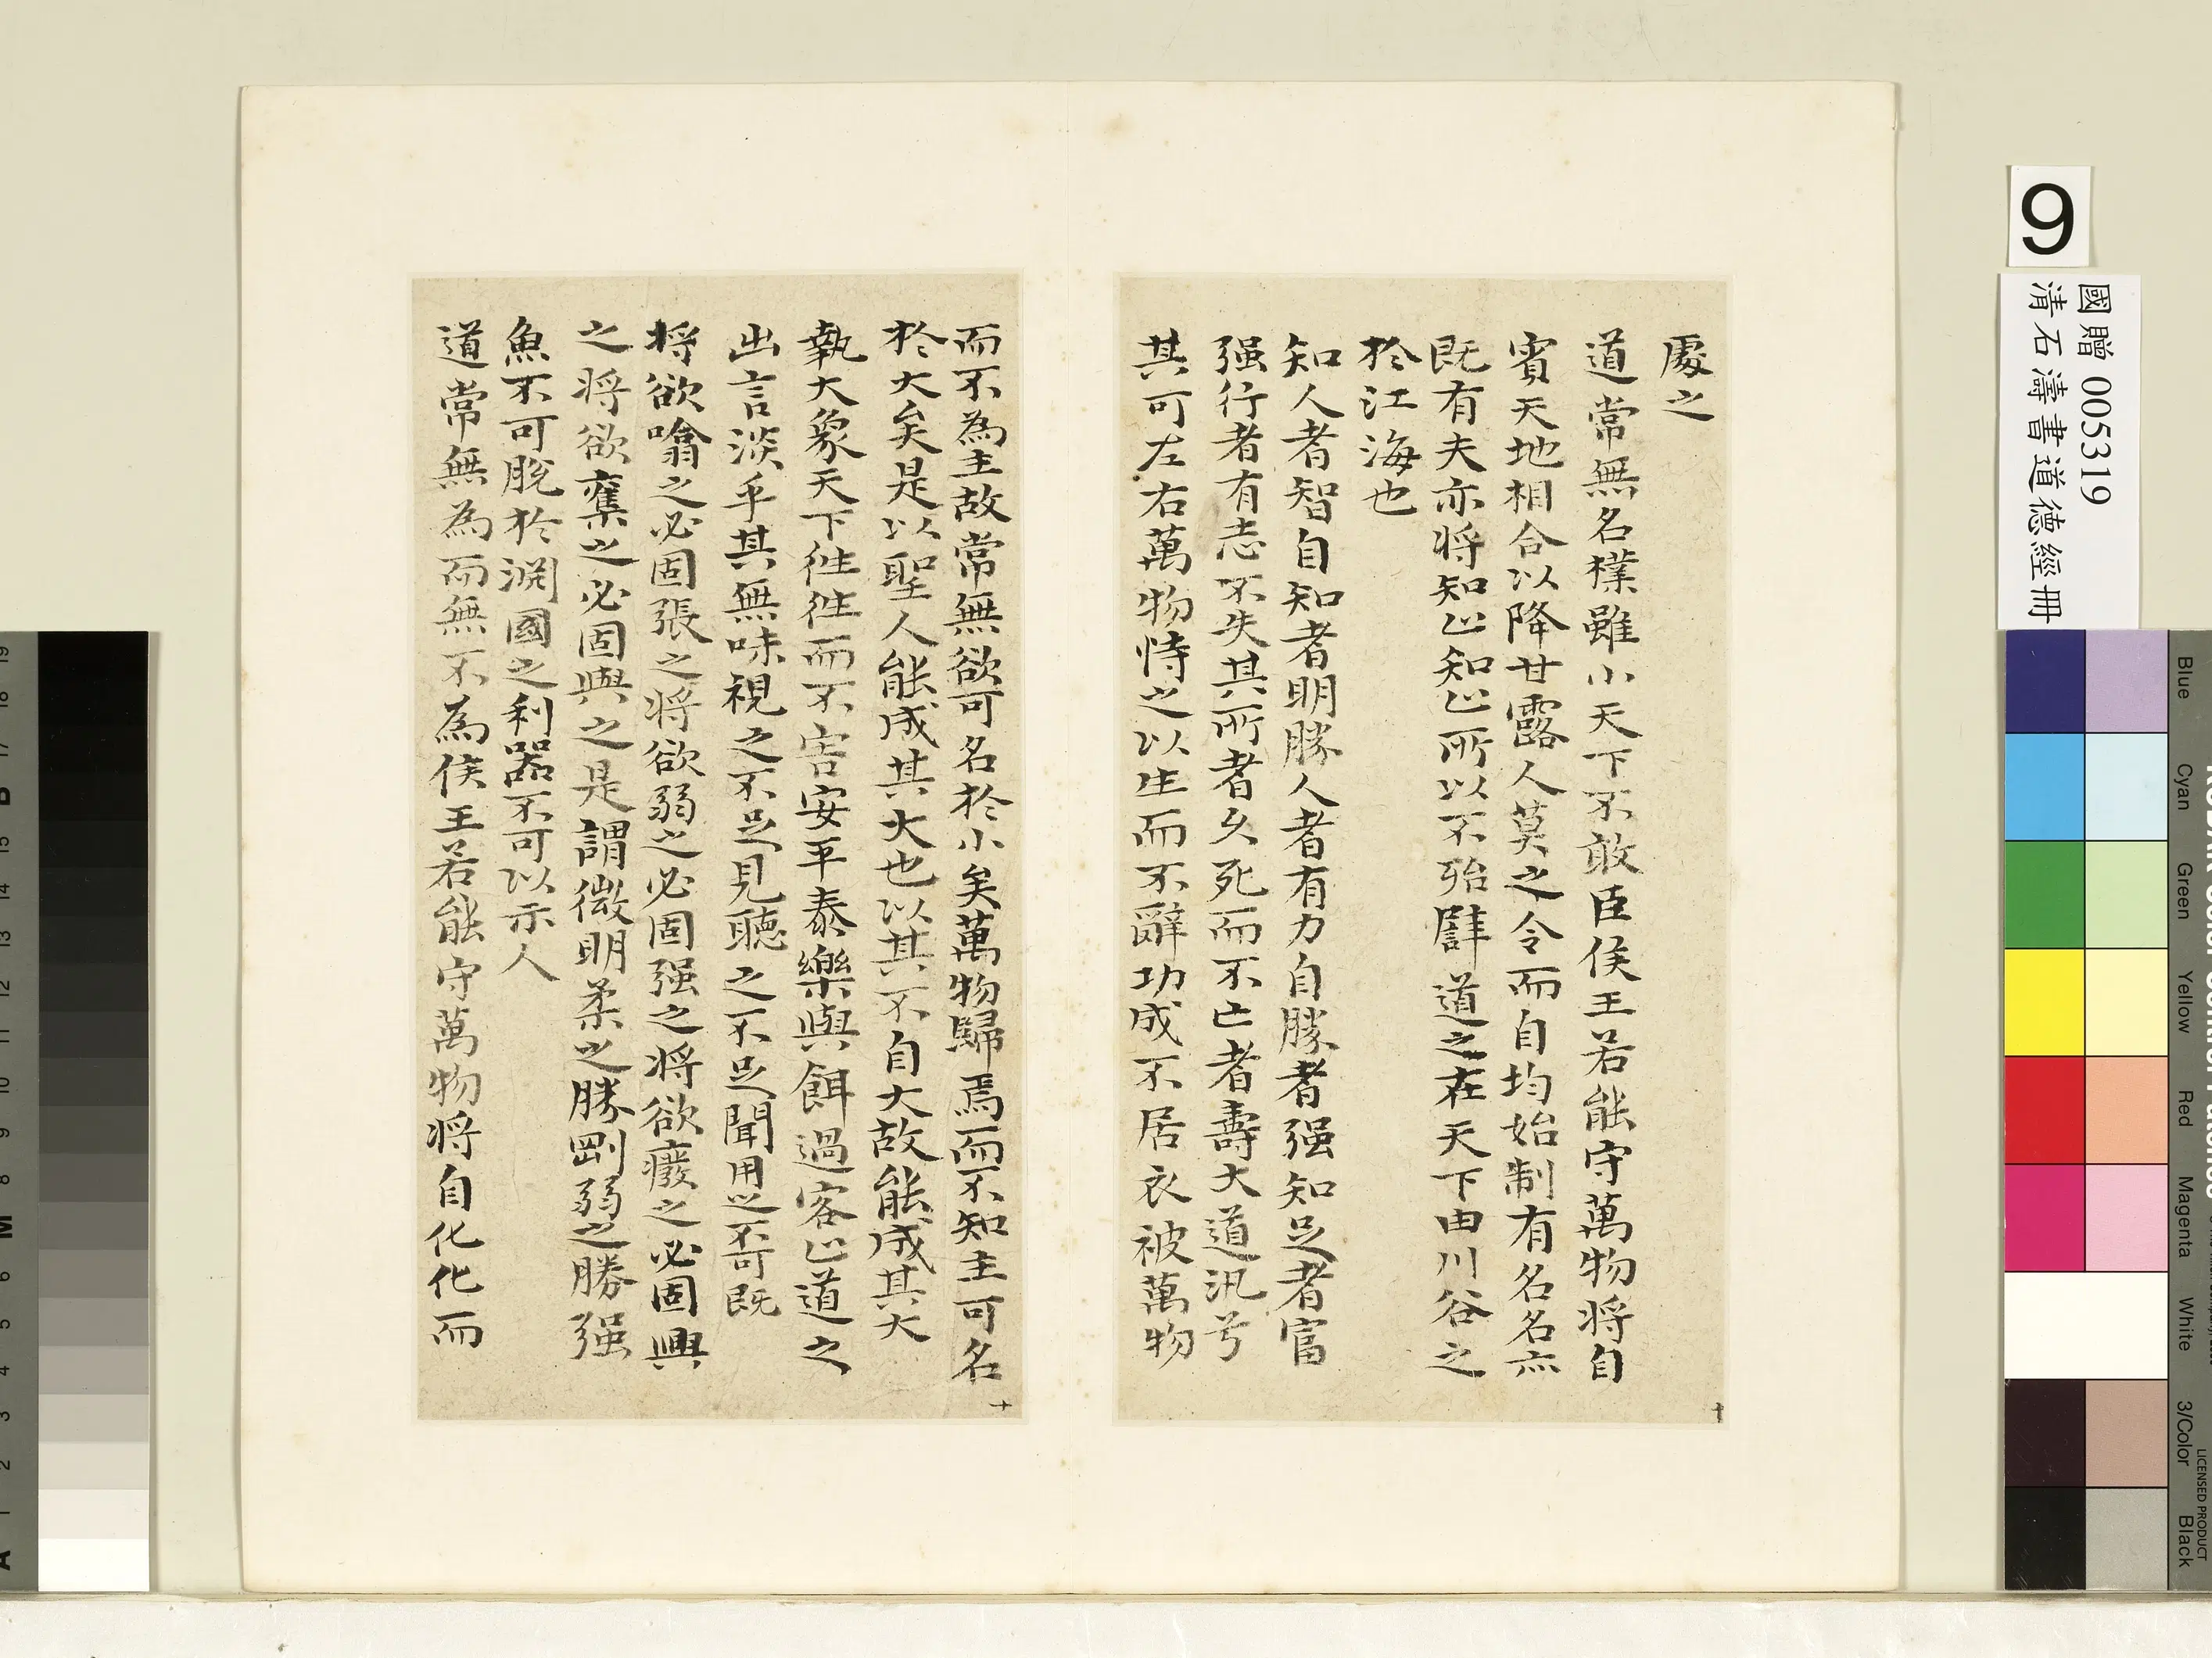 處之
道常無名樸雖小天下不敢臣侯王若能守萬物將自
賓天地相合以降甘露人莫之令而自均始制有名名亦
既有夫亦將知止知止所以不殆譬道之在天下由川谷之
於江海也
知人者智自知者明勝人者有力自勝者强知足者富
强行者有志不失其所者久死而不亡者壽大道汎兮
其可左右萬物恃之以生而不辭功成不居衣被萬物
十
而不為主故常無欲可名於小矣萬物歸焉而不知主可名
於大矣是以聖人能成其大也以其不自大故能成其大
執大象天下往往而不害安平泰樂與餌過客止道之
出言淡乎其無味視之不足見聽之不足聞用之不可既
將欲噏之必固張之將欲弱之必固强之將欲廢之必固興
之將欲奪之必固與之是謂微明柔之勝剛弱之勝强
魚不可脫於淵國之利器不可以示人
道常無為而無不為侯王若能守萬物將自化化而
十
9
國贈 005319
清石濤書道德經冊
Blue
Cyan
Green
Yellow
Red
Magenta
White
3/Color
Black
LICENSED PRODUCT
19
18
17
B
15
14
13
12
11
10
9
8
M
6
5
4
3
2
1
A